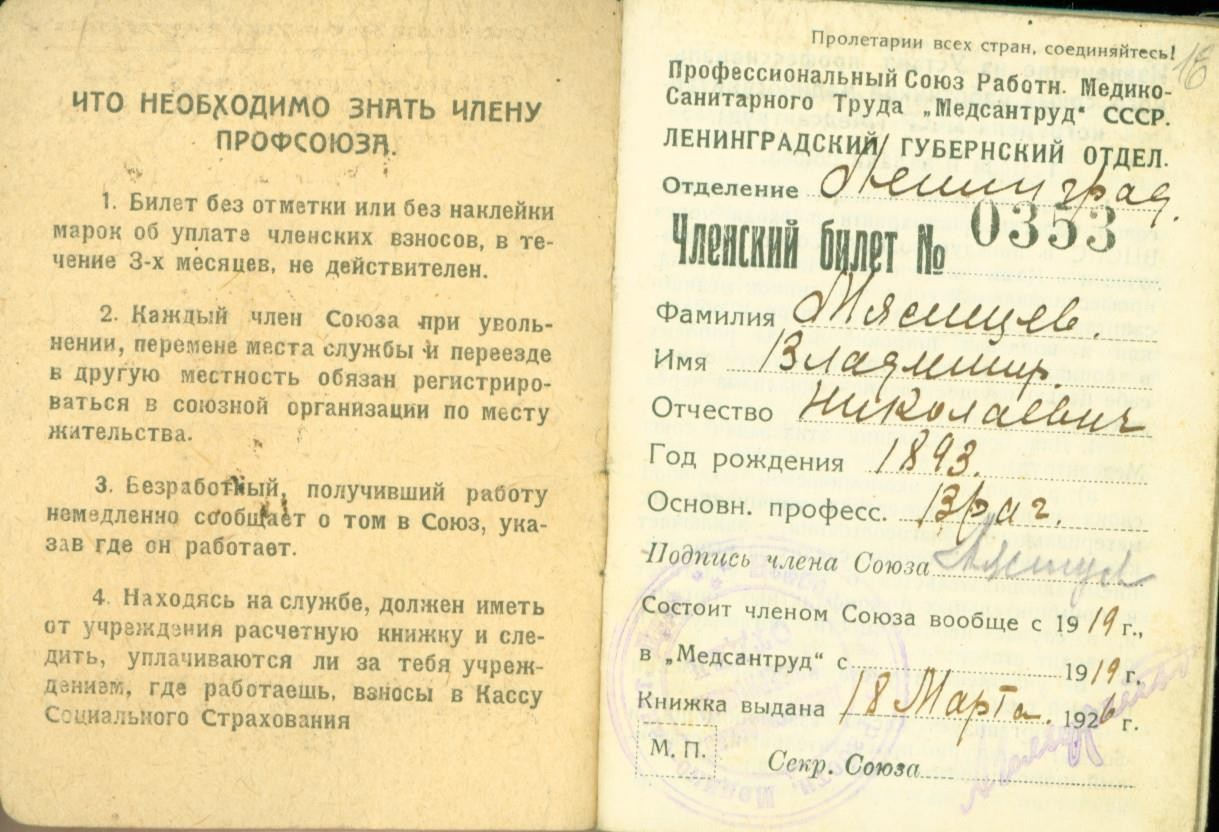 ЧТО НЕОБХОДИМО ЗНАТЬ ЧЛЕНУ
ПРОФСОЮЗА.
1. Билет без отметки или без наклейки
марок об уплате членских взносов, в те-
чение 3-х месяцев, не действителен.
2. Каждый член Союза при уволь-
нении, перемене места службы и переезде
в другую местность обязан регистриро-
ваться в союзной организации по месту
жительства.
3. Безработный, получивший работу
немедленно сообщает о том в Союз, ука-
зав где он работает.
4. Находясь на службе, должен иметь
от учреждения расчетную книжку и сле-
дить, уплачиваются ли за тебя учреж-
дением, где работаешь, взносы в Кассу
Социального Страхования
Пролетарии всех стран, соединяйтесь!
Профессиональный Союз Работн. Медико-
Санитарного Труда „Медсантруд" СССР.
ЛЕНИНГРАДСКИЙ ГУБЕРНСКИЙ ОТДЕЛ.
Отделение Ленинград.
Членский билет № 0353
Фамилия Мясищев.
Имя Владимир.
Отчество Николаевич
Год рождения 1893.
Основн. професс. Врач.
Подпись члена Союза
Состоит членом Союза вообще с 1919 г.,
в „Медсантруд" с 1919 г.
Книжка выдана 18 Марта. 1926 г.
М. П.
Секр. Союза